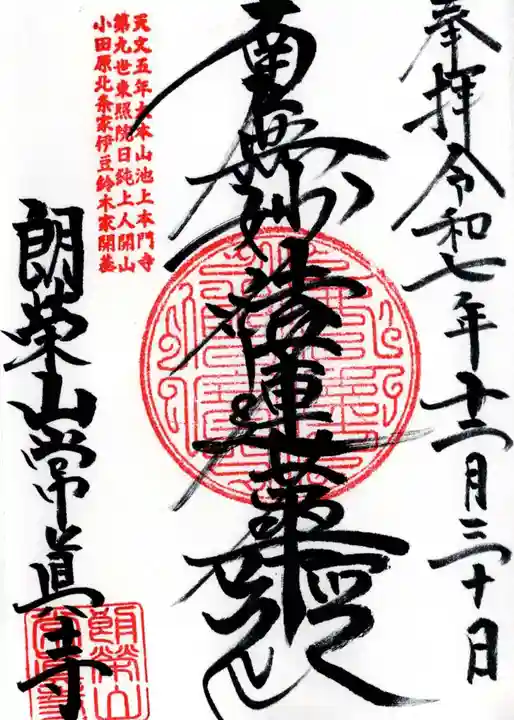 奉拝令和七年十二月三十日
南無妙法蓮華経
天文五年大本山池上本門寺
第九世東照院日純上人開山
小田原北条家伊豆鈴木家開基
朗榮山常眞寺
朗榮山